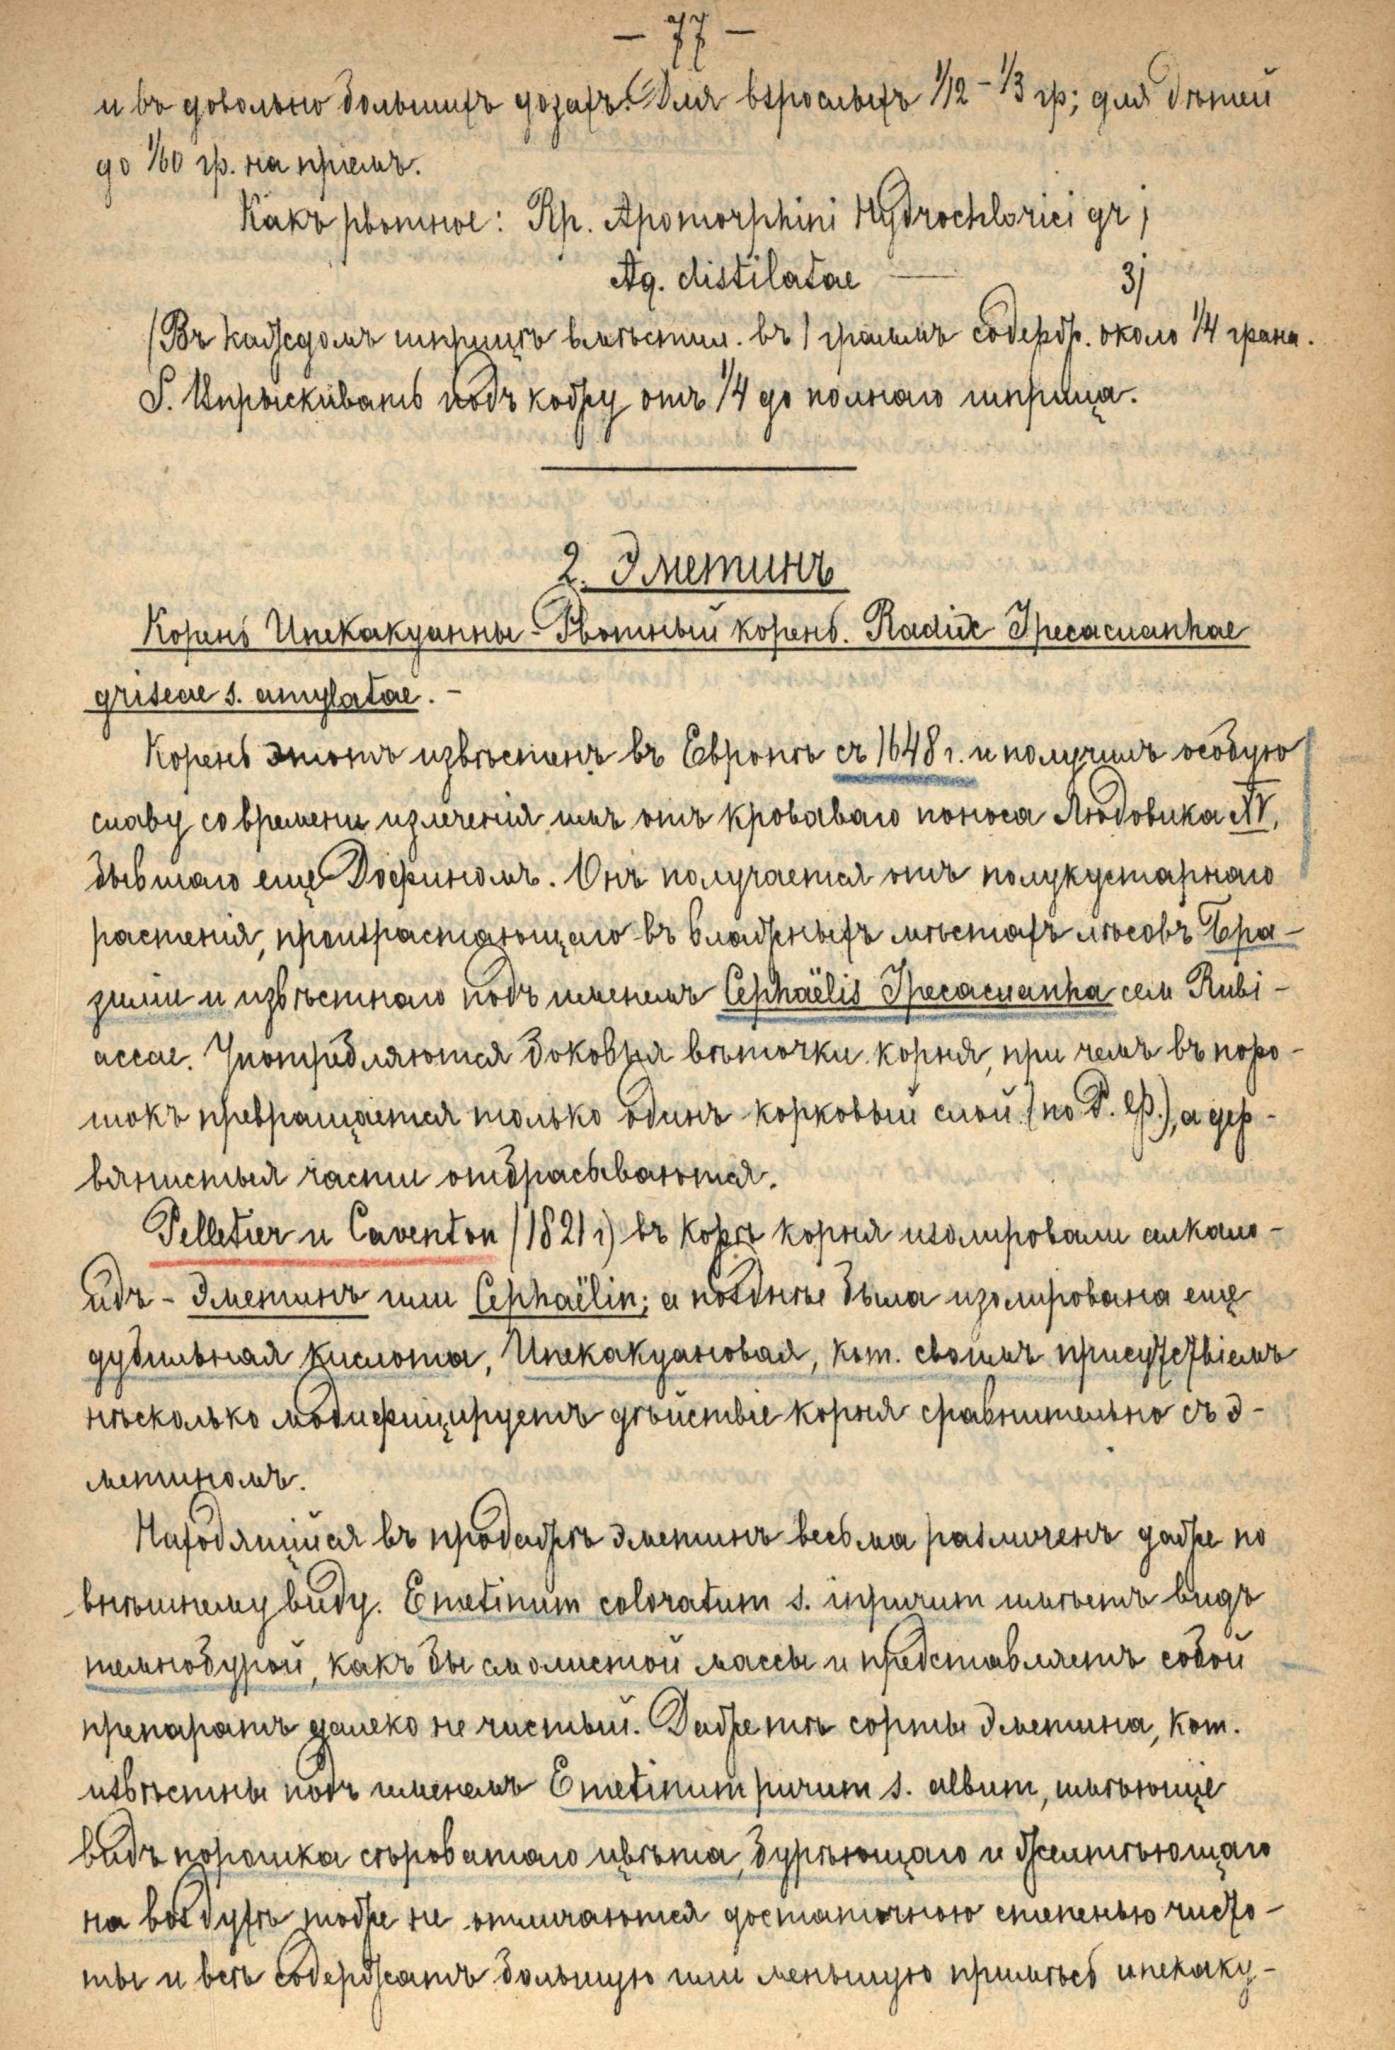 — 77 —
и въ довольно большихъ дозахъ. Для взрослыхъ 1/12 – 1/3 гр; для дѣтей
до 1/60 гр. на пріемъ.
Какъ рвотное: Rp. Apomorphini Hydrochlorici gr j
Aq. distilatae —— ʒj
(Въ каждомъ шприцѣ вмѣстим. въ 1 граммъ содерж. около 1/4 грана.
S. Впрыскивать подъ кожу отъ 1/4 до полнаго шприца.
2. Эметинъ
Корень Ипекакуанны – Рвотный корень. Radix Ipecacuanhae
griseae s. amylatae. –
Корень этотъ извѣстенъ въ Европѣ съ 1648 г. и получилъ особую
славу со времени излеченія имъ отъ кроваваго поноса Людовика XV,
бывшаго еще Дофиномъ. Онъ получается отъ полукустарнаго
растенія, произрастающаго въ влажныхъ мѣстахъ лѣсовъ Бра-
зиліи и извѣстнаго подъ именемъ Cephaëlis Ipecacuanha сем Rubi-
accae. Употребляются боковыя вѣточки корня, при чемъ въ поро-
шокъ превращается только одинъ корковый слой (по Р. Ф.), а дер-
вянистыя части отбрасываются.
Pelletier и Caventon (1821 г) въ корѣ корня изолировали алкало-
идъ – Эметинъ или Cephaëlin; а позднѣе была изолирована еще
дубильная кислота, Ипекакуановая, кот. своимъ присутствіемъ
нѣсколько модифицируетъ дѣйствіе корня сравнительно съ э-
метиномъ.
Находящійся въ продажѣ Эметинъ весьма различенъ даже по
внѣшнему виду. Emetinum coloratum s. inpurum имѣетъ видъ
темнобурой, какъ бы смолистой массы и представляетъ собой
препаратъ далеко не чистый. Даже тѣ сорты Эметина, кот.
извѣстны подъ именемъ Emetinum purum s. album, имѣющіе
видъ порошка сѣроватаго цвѣта, бурѣющаго и желтѣющаго
на воздухѣ тоже не отличаются достаточною степенью чисто-
ты и всѣ содержатъ большую или меньшую примѣсь ипекаку-